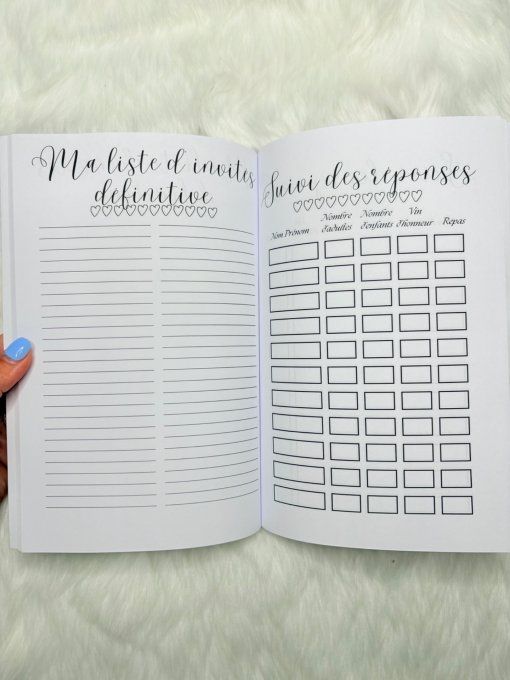 Ma liste d'invités
définitive
Suivi des réponses
Nom Prénom
Nombre d'adultes
Nombre d'enfants
Vin d'honneur
Repas